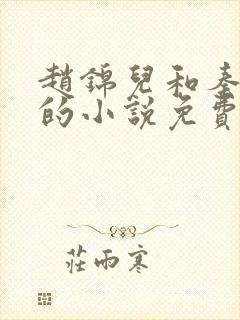 趙錦兒和秦
的小說免費
莊雨寒